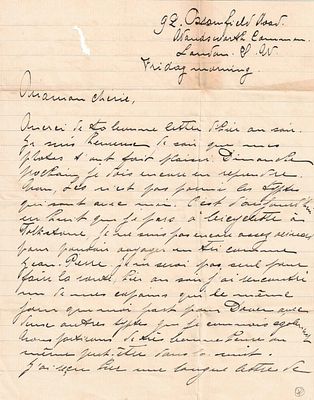 92. Bromfield Road.
Wandsworth Common.
London. S. W.
Friday morning.
Maman chérie,
Merci de ta bonne lettre d'hier au soir.
Je suis heureux de savoir que mes
photos t'ont fait plaisir. Dimanche
prochain je dois encore en reprendre
bon, ce n'est pas parmi les types
qui sont avec moi. C'est d'aujourd'hui
en huit que je pars à bicyclette à
Folkestone. Je ne suis pas encore assez
pour pouvoir voyager en comme
Jean. Pierre je ne serai pas seul pour
faire la route, hier au soir j'ai rencontré
un de mes copains qui le même
jour que moi part pour Douvres avec
deux autres types que je connais également
Nous partirons de très bonne heure ou
même peut-être dans la nuit.
J'ai reçu hier une longue lettre de